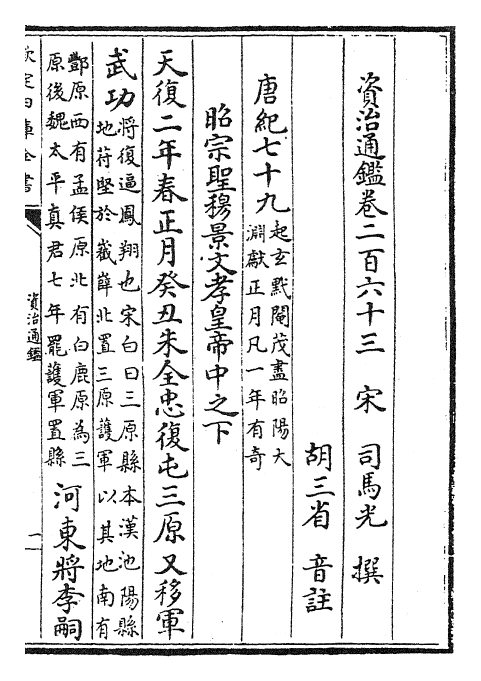 資治通鑑卷二百六十三　宋　司馬光　撰
胡三省　音註
唐紀七十九起玄黓閹茂盡昭陽大
淵獻正月凡一年有奇
昭宗聖穆景文孝皇帝中之下
天復二年春正月癸丑朱全忠復屯三原又移軍
武功將復逼鳳翔也宋白曰三原縣本漢池陽縣
地苻堅於嶻嶭北置三原護軍以其地南有
酆原西有孟侯原北有白鹿原為三
原後魏太平真君七年罷護軍置縣
河東將李嗣
欽定四庫全書
資治通鑑
一